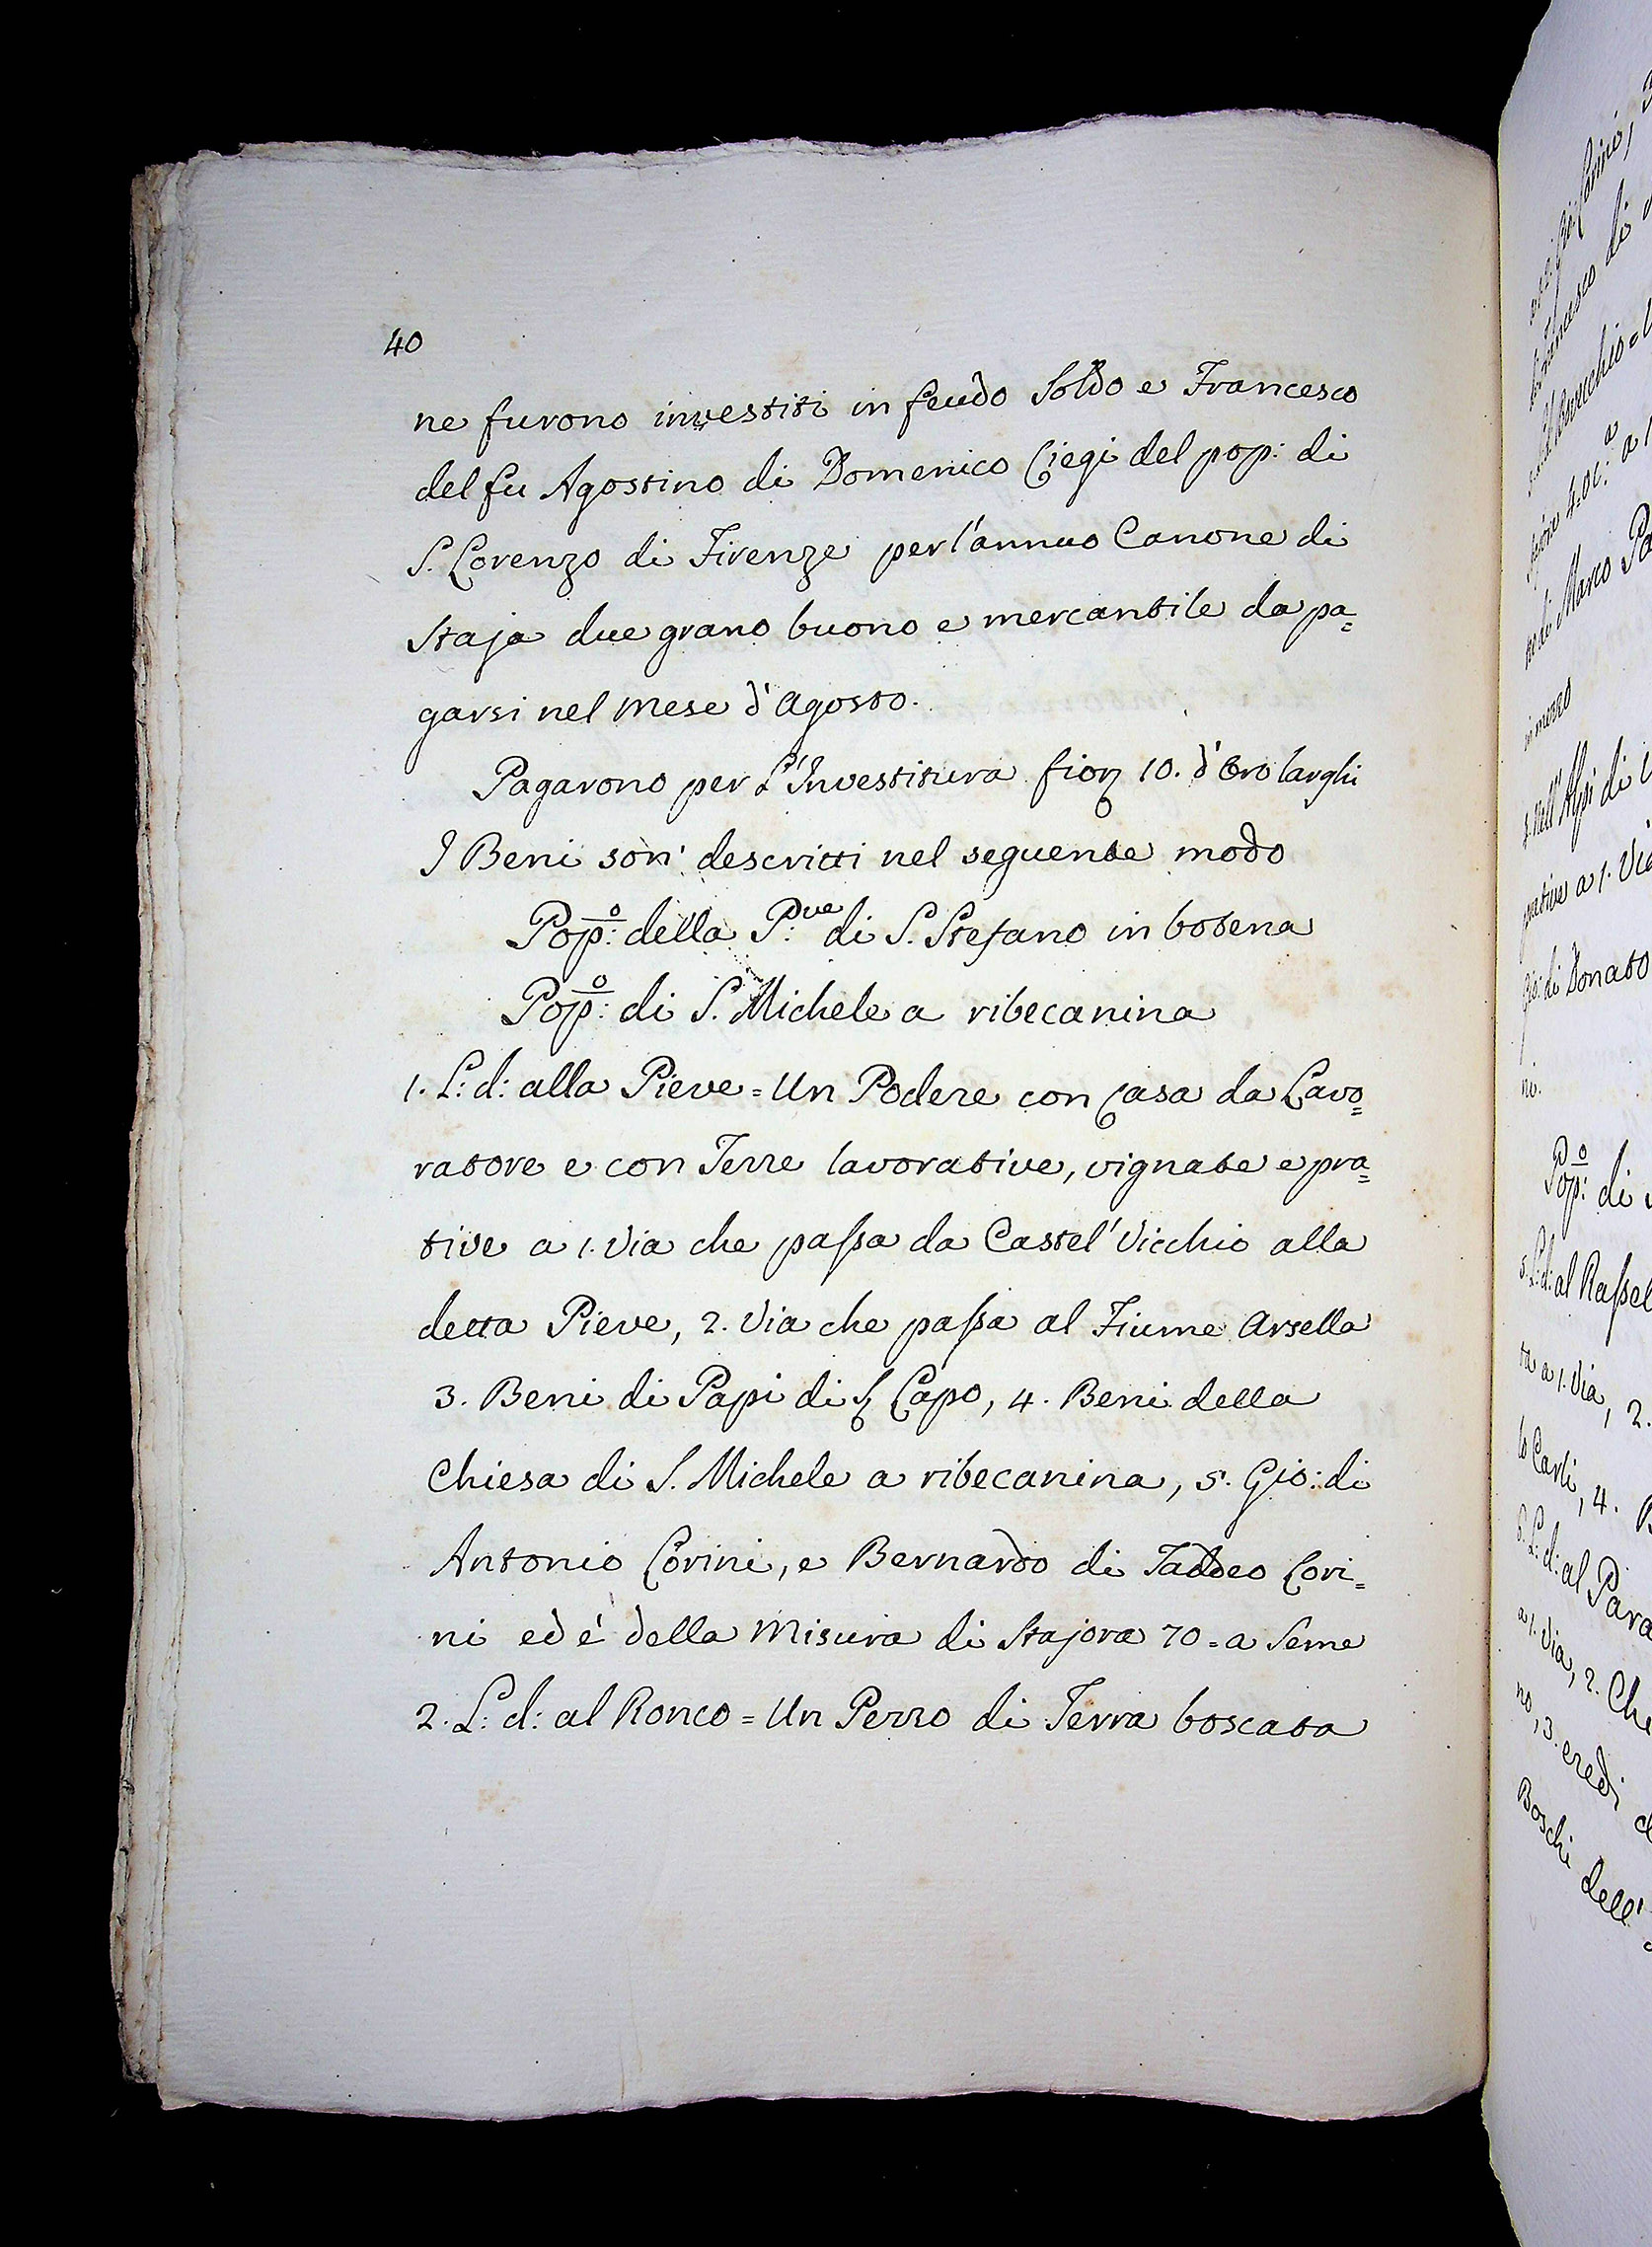 40
ne furono investiti in feudo Soldo e Francesco
del fu Agostino di Domenico Ciegi del pop: di
S. Lorenzo di Firenze per l'annuo Canone di
Staja due grano buono e mercantile da pa=
garsi nel mese d'Agosto.
Pagarono per L'Investitura fior 10. d'Oro larghi
I Beni son' descritti nel seguente modo
Pop:o della P:ve di S. Stefano in botena
Pop:o di S. Michele a ribecanina
1. L: d: alla Pieve = Un Podere con Casa da Lavo=
ratore e con Terre lavorative, vignate e pra=
tive a 1. Via che passa da Castel' Vicchio alla
detta Pieve, 2. Via che passa al Fiume Arsella
3. Beni di Papi di Capo, 4. Beni della
Chiesa di S. Michele a ribecanina, 5. Gio: di
Antonio Corini, e Bernardo di Taddeo Cori=
ni ed é della Misura di Stajora 70 = a Seme
2. L: d: al Ronco = Un Pezzo di Terra boscata
di Marco
in mezzo
nell'Alpi di
prative a 1. Via
Gio: di Donato
ni.
Pop:o di
5. L: d: al
ta a 1. Via, 2.
Carli, 4.
6. L: d: al
a 1. Via, 2. Che
no, 3. eredi
Boschi dell'